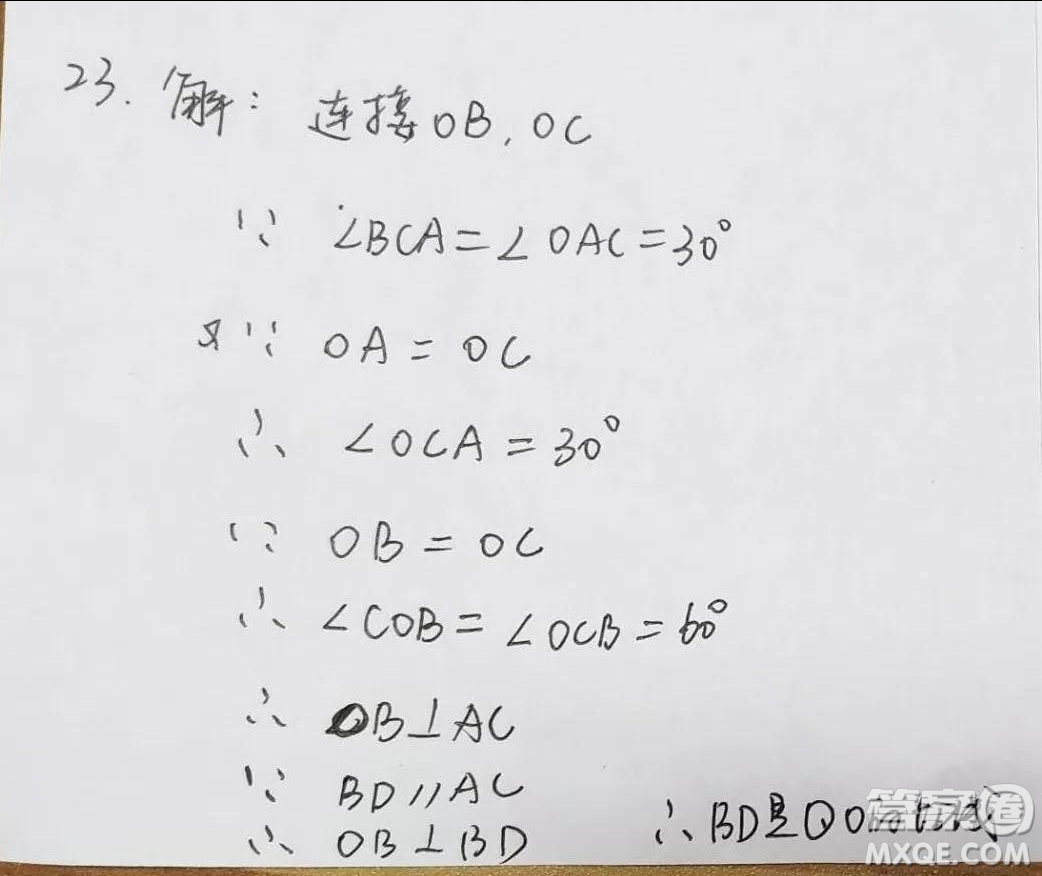 23. 解: 连接OB, OC
∵ ∠BCA=∠OAC=30°
又∵ OA=OC
∴ ∠OCA=30°
∵ OB=OC
∴ ∠COB=∠OCB=60°
∴ OB⊥AC
∵ BD//AC
∴ OB⊥BD ∴BD是⊙O的切线
答案圈
MXQE.COM